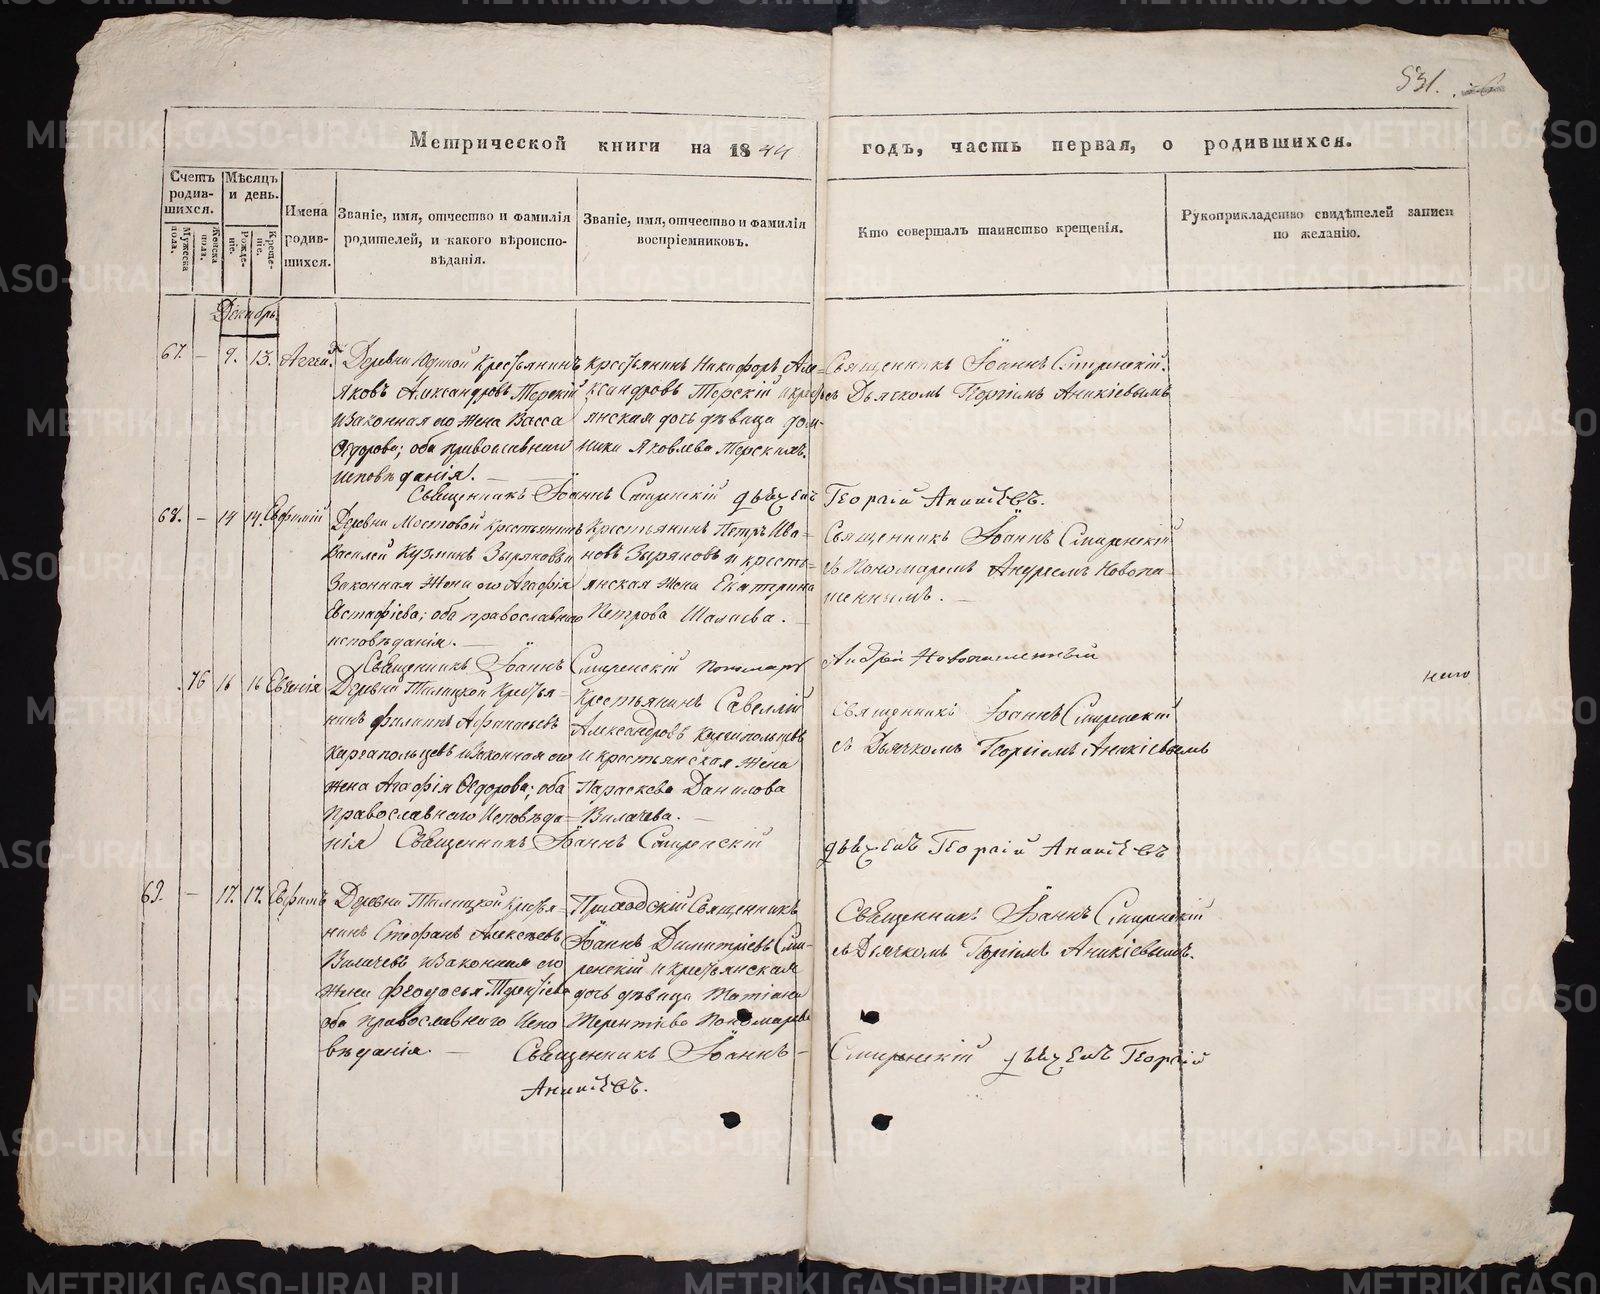 531.
Метрической книги на 1844 годъ, часть первая, о родившихся.
Счетъ родив-шихся.
Мужеска пола.
Женска пола.
Мѣсяцъ и день.
Рожде-ніе.
Креще-ніе.
Имена родив-шихся.
Званіе, имя, отчество и фамилія
родителей, и какого вѣроиспо-
вѣданія.
Званіе, имя, отчество и фамилія
воспріемниковъ.
Кто совершалъ таинство крещенія.
Рукоприкладство свидѣтелей записи
по желанію.
Декабрь.
67. — 9. 13. Аггей.
Деревни Крестьянинъ
Яковъ Александровъ Терскій
и законная его жена Васса
Ѳедорова; оба православнаго
исповѣданія. —
Крестьянинъ Никифоръ Але-
ксандровъ Терскій и кресть-
янская дочь дѣвица Дом-
ника Яковлева Терскихъ.
Священникъ Іоаннъ Смиренскій
съ Дьячкомъ Георгіемъ Аникіевымъ
Священникъ Іоаннъ Смиренскій дьячекъ Георгій Аникіевъ.
68. — 14 14. Евфимій
Деревни Мостовой крестьянинъ
Василей Кузминъ Зыряновъ и
законная жена его Агафія
Евстафіева; оба православнаго
исповѣданія. —
Крестьянинъ Петръ Ива-
новъ Зыряновъ и кресть-
янская жена Екатерина
Петрова Шалаева. —
Священникъ Іоаннъ Смиренскій
съ Пономаремъ Андреемъ Новопа-
шеннымъ. —
Священникъ Іоаннъ Смиренскій Пономарь Андрей Новопашенный
76 16 16 Евгенія
Деревни Талицкой Крестья-
нинъ Филиппъ Афанасьевъ
Каргапольцевъ и законная его
жена Агафія Ѳедорова; оба
православнаго исповѣда-
нія
Крестьянинъ Савеллій
Александровъ Каргапольцевъ
и крестьянская жена
Параскева Данилова
Вилачева. —
Священникъ Іоаннъ Смиренскій
съ Дьячкомъ Георгіемъ Аникіевымъ
Священникъ Іоаннъ Смиренскій дьячекъ Георгій Аникіевъ
69. — 17. 17. Евфимъ
Деревни Талицкой Кресья-
нинъ Стефанъ Алексѣевъ
Вилачевъ и законная его
жена Феодосья Терентіева
оба православнаго испо
вѣданія. —
Приходскій Священникъ
Іоаннъ Димитріевъ Сми-
ренскій и крестьянская
дочь дѣвица Татіана
Терентіева Пономарева
Священникъ Іоаннъ Смиренскій
съ Дьячкомъ Георгіемъ Аникіевымъ.
Священникъ Іоаннъ — Смиренскій дьячекъ Георгій
Аникіевъ.
METRIKI.GASO-URAL.RU